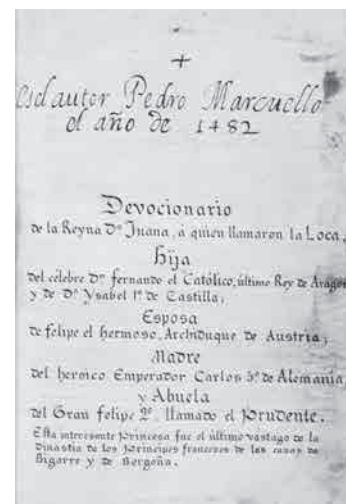 +
es el autor Pedro Marcuello
el año de 1482
Devocionario
de la Reyna Dª Juana, á quien llamaron la Loca,
hija
del célebre Dn fernando el Católico, último Rey de Aragon
y de Dª Ysabel 1ª de Castilla;
Esposa
de felipe el hermoso, Archiduque de Austria;
Madre
del heroico Emperador Carlos 5º de Alemania,
y Abuela
del Gran felipe 2º, llamado el prudente.
Esta interesante princesa fue el último vastago de la
Dinastia de los principes franceses de las casas de
Bigorre y de Borgoña.